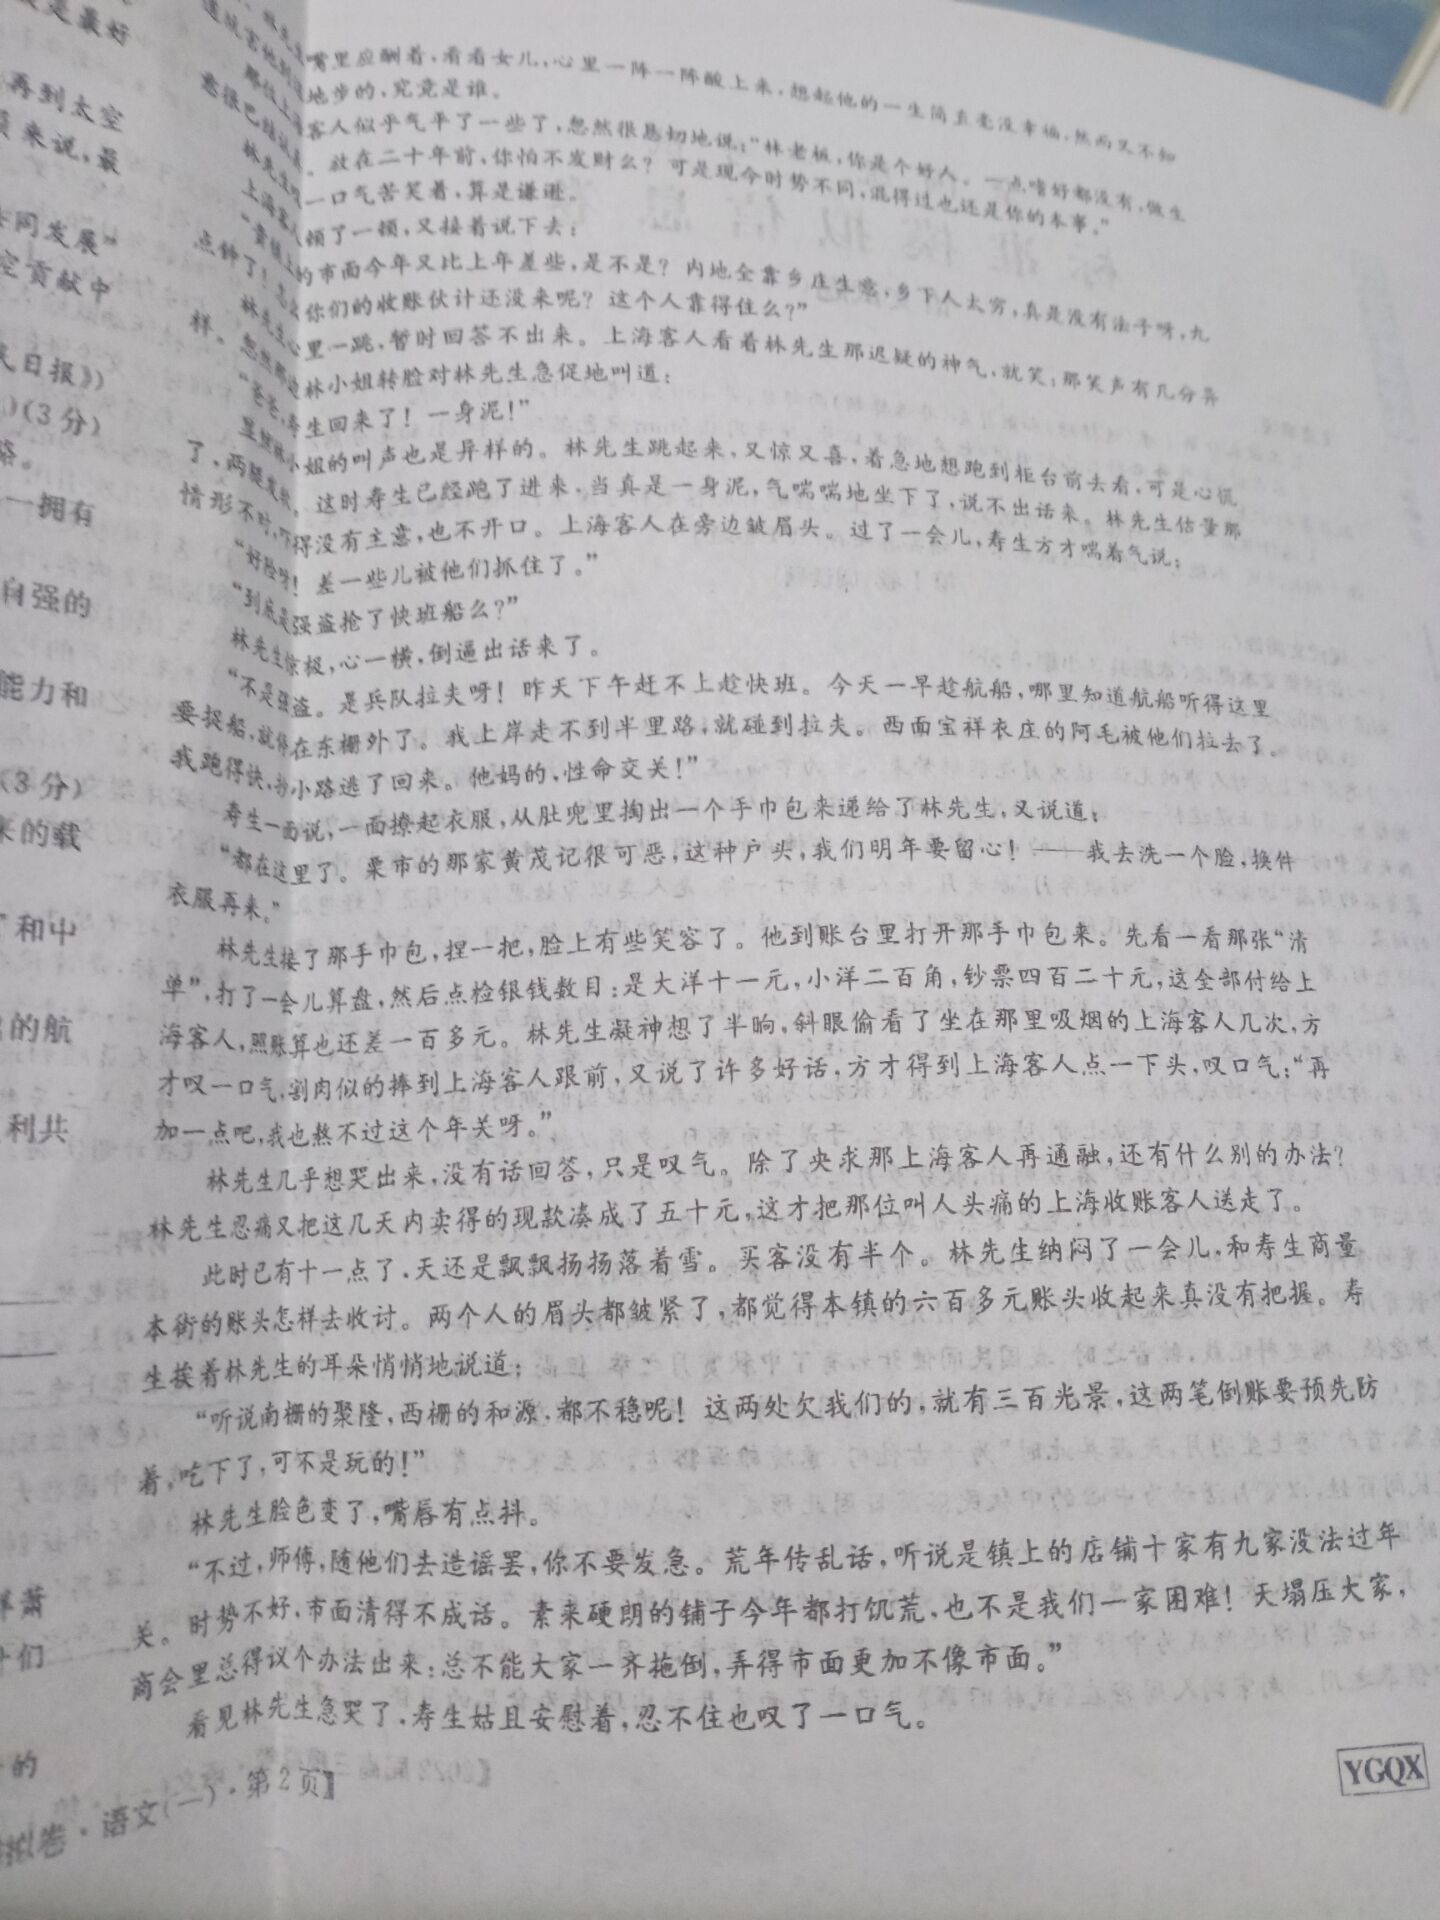 是最好
再到太空
来说,最
同发展”
空贡献中
民日报》)
(3分)
略。
一拥有
自强的
能力和
(3分)
来的载
和中
的航
利共
们
的
嘴里应酬着,看看女儿,心里一阵一阵酸上来,想起他的一生简直毫没幸福,然而又不知
地步的,究竟是谁。
客人似乎气平了一些了,忽然很恳切地说:“林老板,你是个好人。一点嗜好都没有,做生
意很巴结认真。放在二十年前,你怕不发财么?可是现今时势不同,混得过也还是你的本事。”
林先生叹一口气苦笑着,算是谦逊。
上海客人顿了一顿,又接着说下去:
“贵镇上的市面今年又比上年差些,是不是?内地全靠乡庄生意,乡下人太穷,真是没有法子呀,九
点钟了!怎么你们的收账伙计还没来呢?这个人靠得住么?”
林先生心里一跳,暂时回答不出来。上海客人看着林先生那迟疑的神气,就笑;那笑声有几分异
样。忽然那边林小姐转脸对林先生急促地叫道:
“爸爸,寿生回来了!一身泥!”
小姐的叫声也是异样的。林先生跳起来,又惊又喜,着急地想跑到柜台前去看,可是心慌
了,两腿发软。这时寿生已经跑了进来,当真是一身泥,气喘喘地坐下了,说不出话来。林先生估量那
情形不对,吓得没有主意,也不开口。上海客人在旁边皱眉头。过了一会儿,寿生方才喘着气说:
“好险呀!差一些儿被他们抓住了。”
“到底是强盗抢了快班船么?”
林先生惊极,心一横,倒逼出话来了。
“不是强盗。是兵队拉夫呀!昨天下午赶不上趁快班。今天一早趁航船,哪里知道航船听得这里
要捉船,就停在东栅外了。我上岸走不到半里路,就碰到拉夫。西面宝祥衣庄的阿毛被他们拉去了。
我跑得快,抄小路逃了回来。他妈的,性命交关!”
寿生一面说,一面撩起衣服,从肚兜里掏出一个手巾包来递给了林先生,又说道:
“都在这里了。栗市的那家黄茂记很可恶,这种户头,我们明年要留心!——我去洗一个脸,换件
衣服再来。”
林先生接了那手巾包,捏一把,脸上有些笑容了。他到账台里打开那手巾包来。先看一看那张“清
单”,打了一会儿算盘,然后点检银钱数目:是大洋十一元,小洋二百角,钞票四百二十元,这全部付给上
海客人,照账算也还差一百多元。林先生凝神想了半晌,斜眼偷看了坐在那里吸烟的上海客人几次,方
才叹一口气,割肉似的捧到上海客人跟前,又说了许多好话,方才得到上海客人点一下头,叹口气:“再
加一点吧,我也熬不过这个年关呀。”
林先生几乎想哭出来,没有话回答,只是叹气。除了央求那上海客人再通融,还有什么别的办法?
林先生忍痛又把这几天内卖得的现款凑成了五十元,这才把那位叫人头痛的上海收账客人送走了。
此时已有十一点了,天还是飘飘扬扬落着雪。买客没有半个。林先生纳闷了一会儿,和寿生商量
本街的账头怎样去收讨。两个人的眉头都皱紧了,都觉得本镇的六百多元账头收起来真没有把握。寿
生挨着林先生的耳朵悄悄地说道:
“听说南栅的聚隆,西栅的和源,都不稳呢!这两处欠我们的,就有三百光景,这两笔倒账要预先防
着,吃下了,可不是玩的!”
林先生脸色变了,嘴唇有点抖。
“不过,师傅,随他们去造谣罢,你不要发急。荒年传乱话,听说是镇上的店铺十家有九家没法过年
关。时势不好,市面清得不成话。素来硬朗的铺子今年都打饥荒,也不是我们一家困难!天塌压大家,
商会里总得议个办法出来;总不能大家一齐拖倒,弄得市面更加不像市面。”
看见林先生急哭了,寿生姑且安慰着,忍不住也叹了一口气。
拟卷·语文(一)·第2页】
YGQX